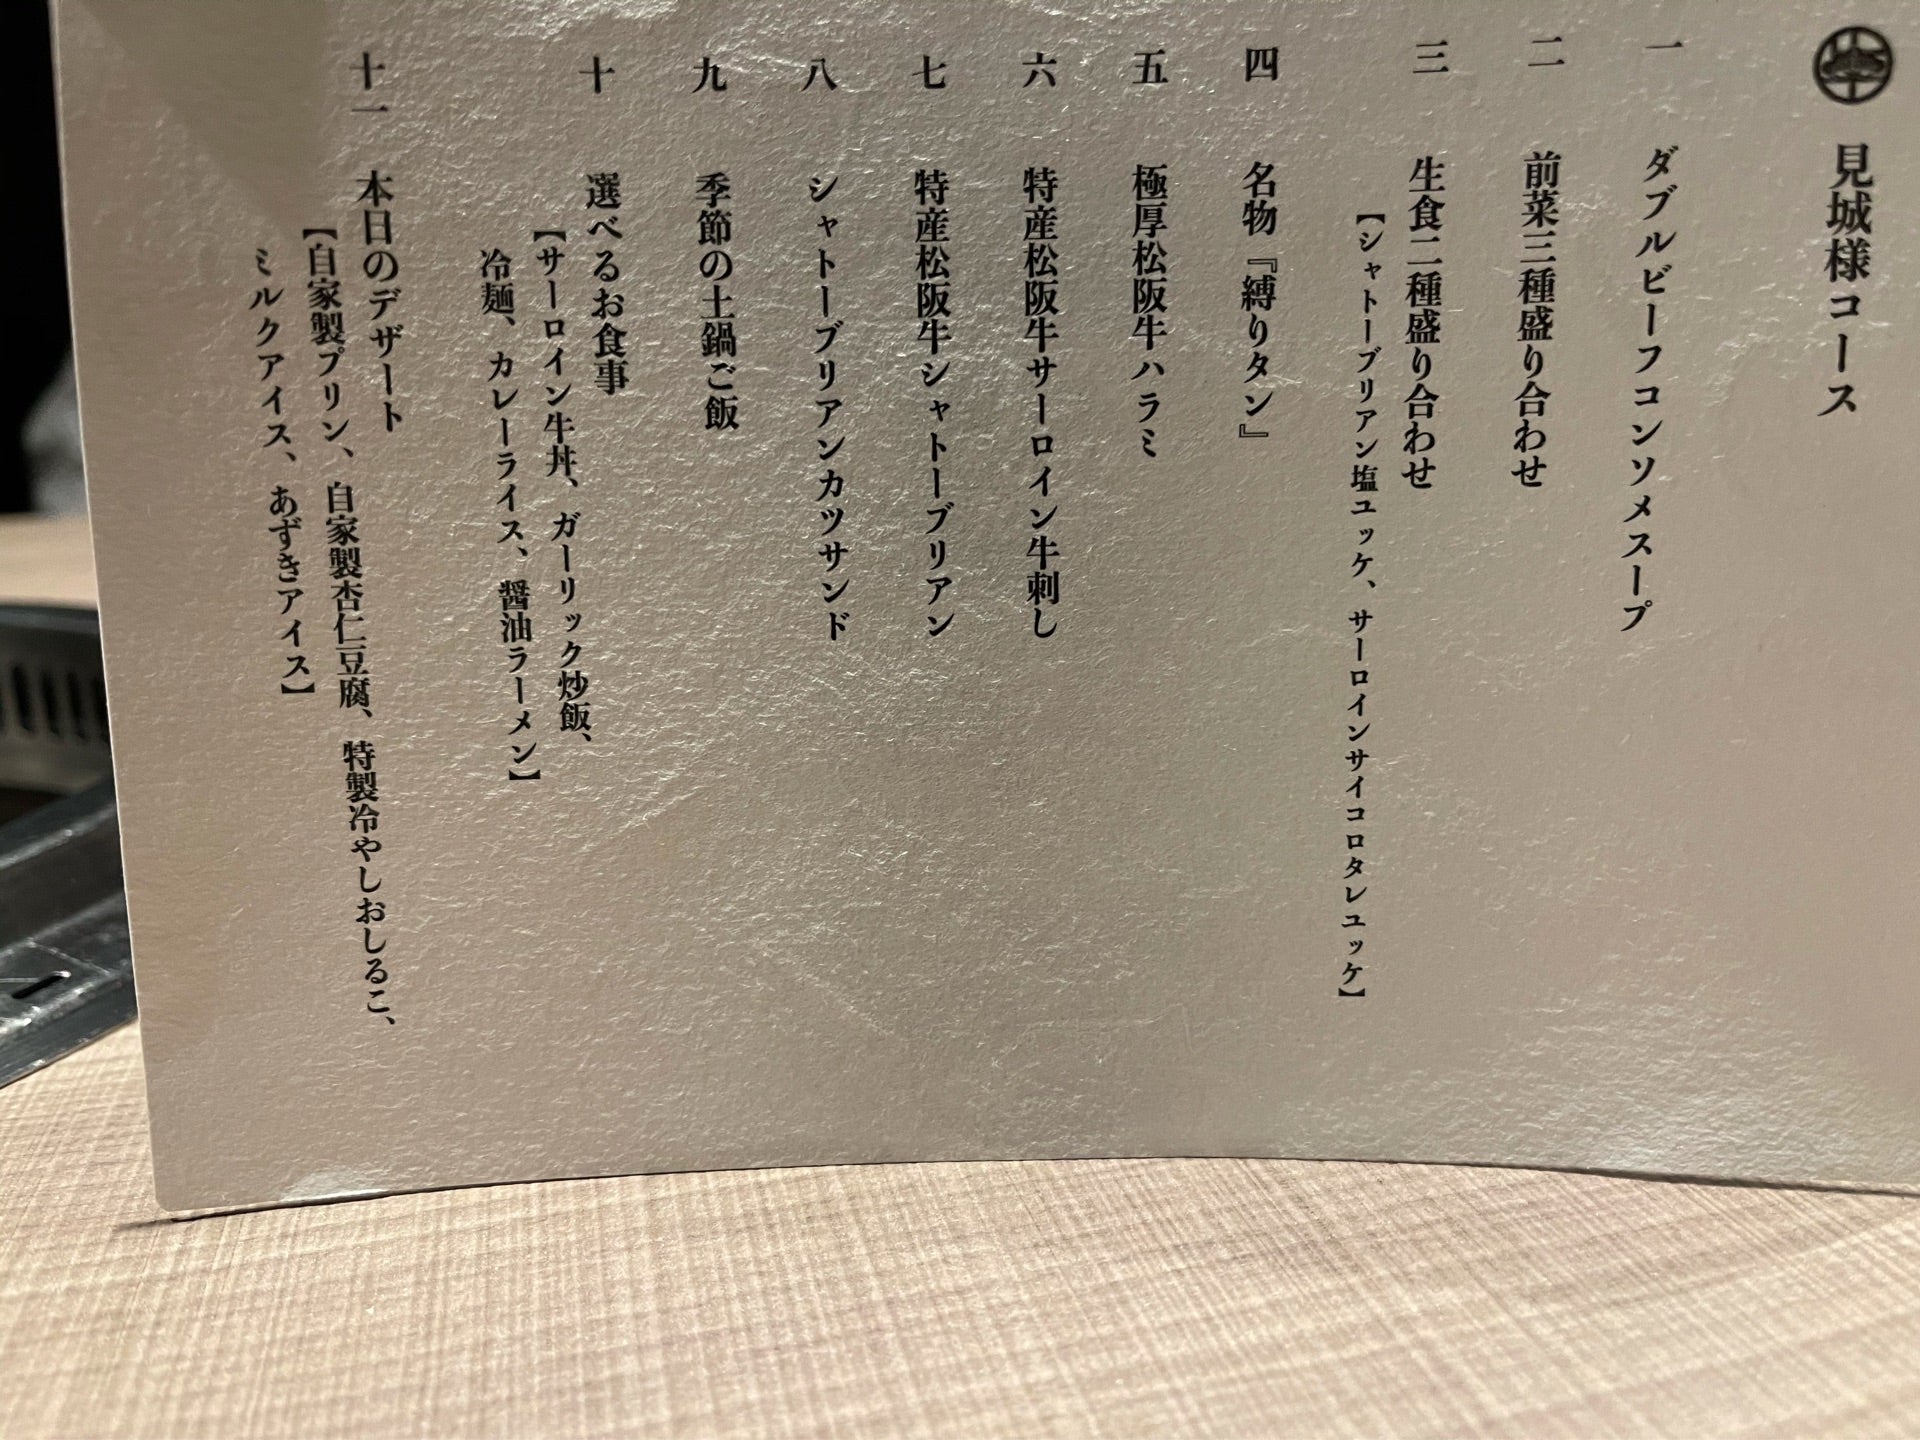 見城様コース
一 ダブルビーフコンソメスープ
二 前菜三種盛り合わせ
三 生食二種盛り合わせ
【シャトーブリアン塩ユッケ、サーロインサイコロタレユッケ】
四 名物『縛りタン』
五 極厚松阪牛ハラミ
六 特産松阪牛サーロイン牛刺し
七 特産松阪牛シャトーブリアン
八 シャトーブリアンカツサンド
九 季節の土鍋ご飯
十 選べるお食事
【サーロイン牛丼、ガーリック炒飯、
冷麺、カレーライス、醤油ラーメン】
十一 本日のデザート
【自家製プリン、自家製杏仁豆腐、特製冷やしおしるこ、
ミルクアイス、あずきアイス】